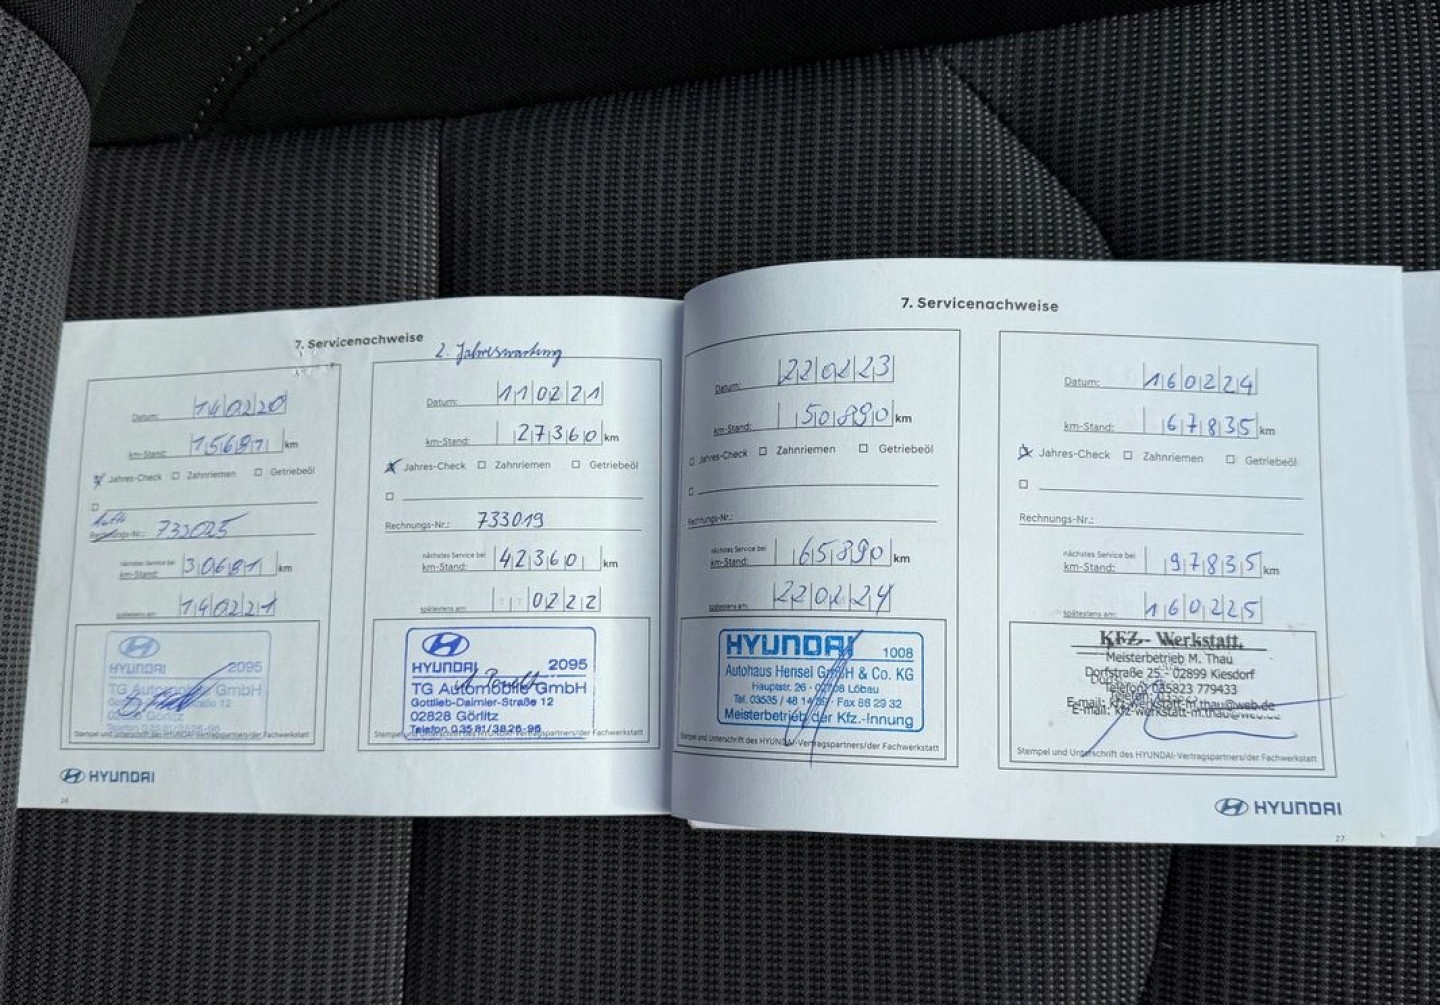 7. Servicenachweise
Datum: 14 02 20
km-Stand: 15681 km
Jahres-Check Zahnriemen Getriebeöl
Rechnungs-Nr.: 733025
nächstes Service bei
km-Stand: 30681 km
spätestens am: 14 02 21
HYUNDAI 2095
TG Automobile GmbH
Gottlieb-Daimler-Straße 12
02828 Görlitz
Telefon 03581/3826-96
Stempel und Unterschrift des HYUNDAI-Vertragspartners/der Fachwerkstatt
HYUNDAI
26
2. Jahreswartung
Datum: 11 02 21
km-Stand: 27360 km
Jahres-Check Zahnriemen Getriebeöl
Rechnungs-Nr.: 733019
nächstes Service bei
km-Stand: 42360 km
spätestens am: 02 22
HYUNDAI 2095
TG Automobile GmbH
Gottlieb-Daimler-Straße 12
02828 Görlitz
Telefon 03581/3826-96
Stempel und Unterschrift des HYUNDAI-Vertragspartners/der Fachwerkstatt
7. Servicenachweise
Datum: 22 02 23
km-Stand: 50890 km
Jahres-Check Zahnriemen Getriebeöl
Rechnungs-Nr.:
nächstes Service bei
km-Stand: 65890 km
spätestens am: 22 02 24
HYUNDAI 1008
Autohaus Hensel GmbH & Co. KG
Hauptstr. 26 · 02708 Löbau
Fax 86 29 32
Meisterbetrieb der Kfz.-Innung
Stempel und Unterschrift des HYUNDAI-Vertragspartners/der Fachwerkstatt
Datum: 16 02 24
km-Stand: 67835 km
Jahres-Check Zahnriemen Getriebeöl
Rechnungs-Nr.:
nächstes Service bei
km-Stand: 97835 km
spätestens am: 16 02 25
KFZ- Werkstatt
Meisterbetrieb M. Thau
Dorfstraße 25 - 02899 Kiesdorf
Telefon: 035823 779433
E-mail: kfz-werkstatt-m.thau@web.de
Stempel und Unterschrift des HYUNDAI-Vertragspartners/der Fachwerkstatt
HYUNDAI
27